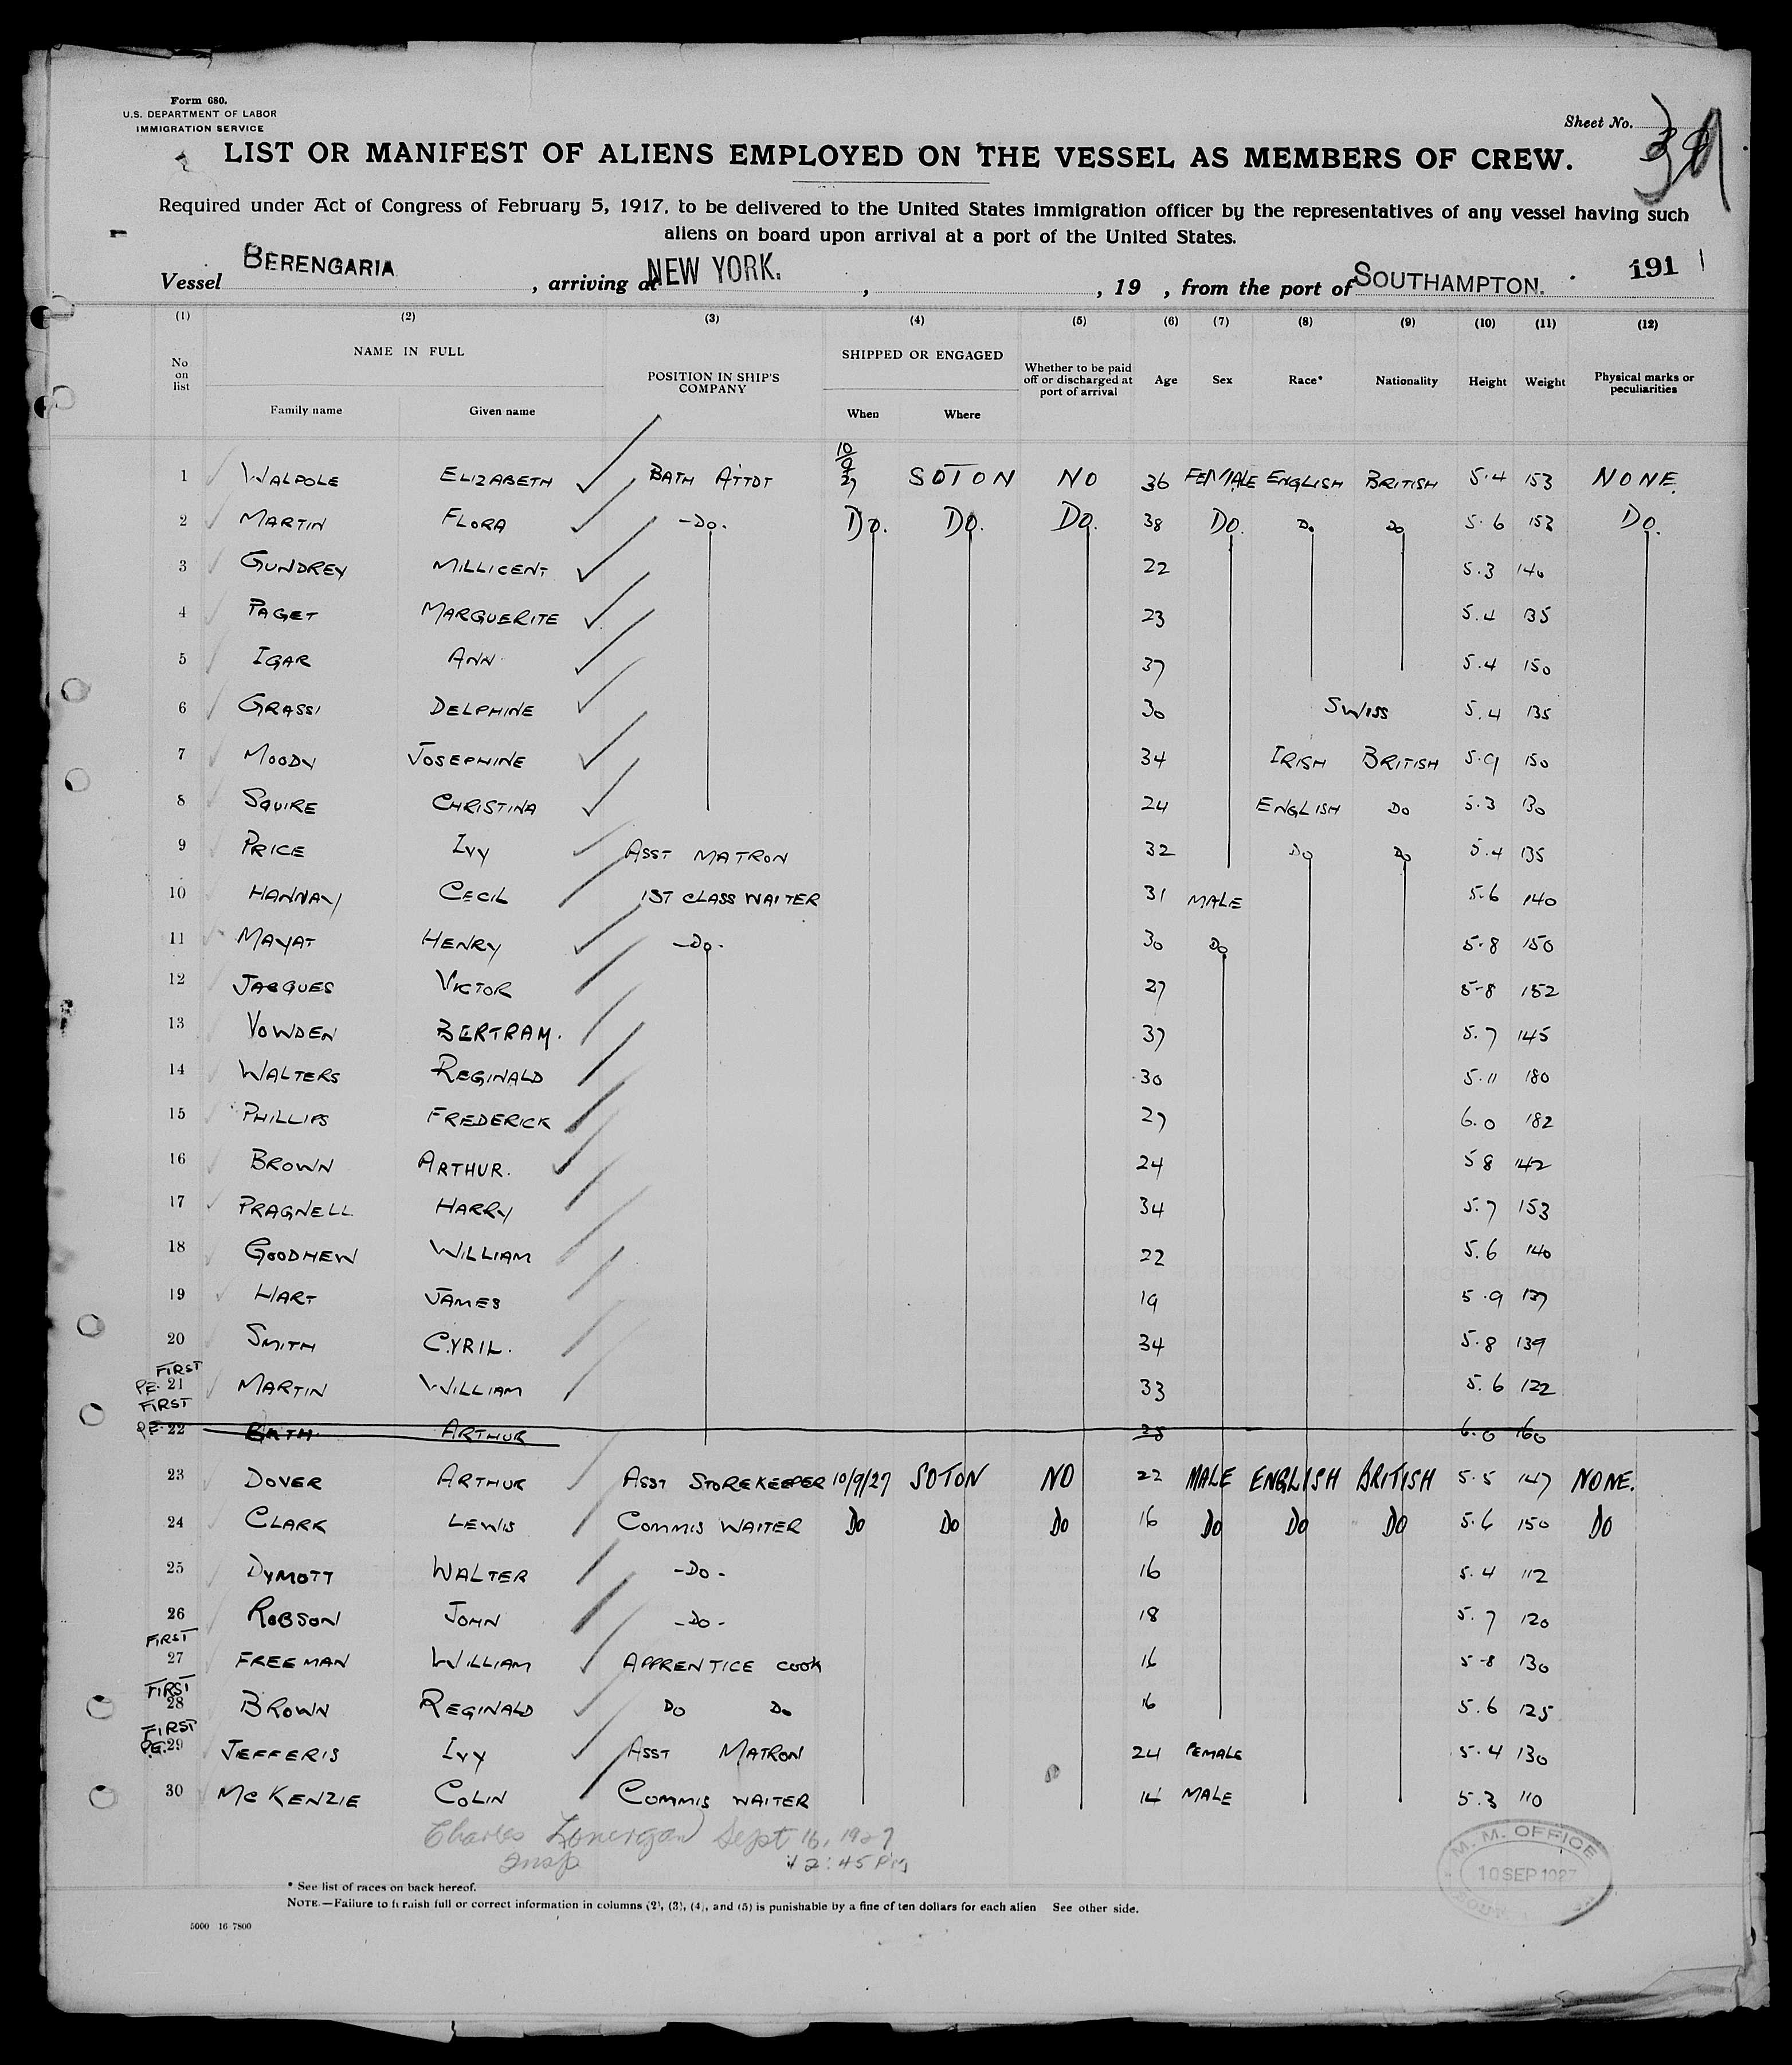 Form 680.
U.S. DEPARTMENT OF LABOR
IMMIGRATION SERVICE
Sheet No.
LIST OR MANIFEST OF ALIENS EMPLOYED ON THE VESSEL AS MEMBERS OF CREW.
Required under Act of Congress of February 5, 1917, to be delivered to the United States immigration officer by the representatives of any vessel having such
aliens on board upon arrival at a port of the United States.
Vessel BERENGARIA , arriving at NEW YORK. , , 19 , from the port of SOUTHAMPTON. 191
(1) (2) (3) (4) (5) (6) (7) (8) (9) (10) (11) (12)
No on list NAME IN FULL Family name Given name POSITION IN SHIP'S COMPANY SHIPPED OR ENGAGED When Where Whether to be paid off or discharged at port of arrival Age Sex Race* Nationality Height Weight Physical marks or peculiarities
1 WALPOLE ELIZABETH BATH ATTDT 10/9/27 SOTON NO 36 FEMALE ENGLISH BRITISH 5.4 153 NONE.
2 MARTIN FLORA -Do. Do. Do. Do. 38 Do. Do Do 5.6 153 Do.
3 GUNDREY MILLICENT 22 5.3 140
4 PAGET MARGUERITE 23 5.4 135
5 IGAR ANN 37 5.4 150
6 GRASSI DELPHINE 30 SWISS 5.4 135
7 MOODY JOSEPHINE 34 IRISH BRITISH 5.9 150
8 SQUIRE CHRISTINA 24 ENGLISH DO 5.3 130
9 PRICE IVY ASST MATRON 32 Do Do 5.4 135
10 HANNAY CECIL 1ST CLASS WAITER 31 MALE 5.6 140
11 MAYAT HENRY -Do- 30 Do 5.8 150
12 JACQUES VICTOR 27 5-8 152
13 VOWDEN BERTRAM. 37 5.7 145
14 WALTERS REGINALD 30 5.11 180
15 PHILLIPS FREDERICK 27 6.0 182
16 BROWN ARTHUR. 24 5 8 142
17 PRAGNELL HARRY 34 5.7 153
18 GOODHEW WILLIAM 22 5.6 140
19 HART JAMES 19 5.9 137
20 SMITH CYRIL. 34 5.8 139
FIRST
PE. 21 MARTIN WILLIAM 33 5.6 122
FIRST
PE. 22 BATH ARTHUR 28 6.0 160
23 DOVER ARTHUR ASST STOREKEEPER 10/9/27 SOTON NO 22 MALE ENGLISH BRITISH 5.5 147 NONE.
24 CLARK LEWIS COMMIS WAITER Do Do Do 16 Do Do Do 5.6 150 Do
25 DYMOTT WALTER -Do- 16 5.4 112
26 ROBSON JOHN -Do- 18 5.7 120
FIRST
27 FREEMAN WILLIAM APPRENTICE COOK 16 5-8 130
FIRST
28 BROWN REGINALD Do Do 16 5.6 125
FIRST
PE. 29 JEFFERIS IVY ASST MATRON 24 FEMALE 5.4 130
30 MCKENZIE COLIN COMMIS WAITER 14 MALE 5.3 110
Charles Lonergan Sept 16, 1927
Insp 2:45 PM
M. M. OFFICE
10 SEP 1927
* See list of races on back hereof.
NOTE.—Failure to furnish full or correct information in columns (2), (3), (4), and (5) is punishable by a fine of ten dollars for each alien See other side.
5000 16 7800